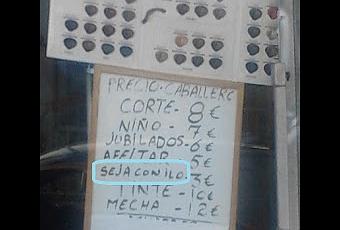 PRECIO-CABALLERO
CORTE- 8€
NIÑO - 7€
JUBILADOS-6€
AFEITAR 5€
SEJA CON ILO. 3€
TINTE - 10€
MECHA - 12€